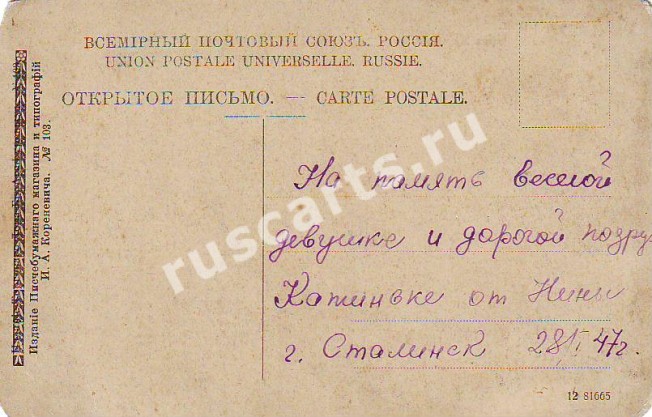 ВСЕМІРНЫЙ ПОЧТОВЫЙ СОЮЗЪ. РОССІЯ.
UNION POSTALE UNIVERSELLE. RUSSIE.
ОТКРЫТОЕ ПИСЬМО. — CARTE POSTALE.
На память веселой
девушке и дорогой подру
от Нины
г. Сталинск 28/I 47г.
Изданіе Писчебумажнаго магазина и типографій
И. А. Кореневича. № 103.
12 81665
ruscarts.ru